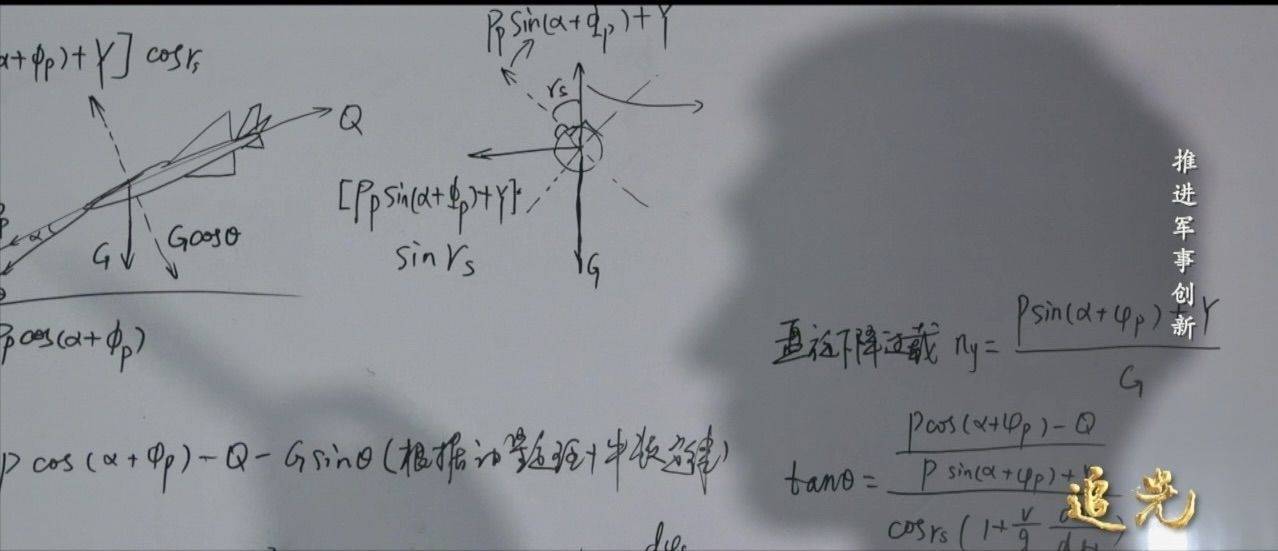 α+φp)+Y] cosrs
Q
G
Gcosθ
α
Pp cos(α+φp)
Pp sin(α+φp)+Y
rs
[Pp sin(α+φp)+Y]·
sin rs
G
推进军事创新
直线下降过载 ny = Psin(α+φp)+Y
G
P cos(α+φp)-Q-Gsinθ(根据动量定理+牛顿定律)
tanθ = Pcos(α+φp)-Q
P sin(α+φp)+
cosrs (1+ v/g
追光